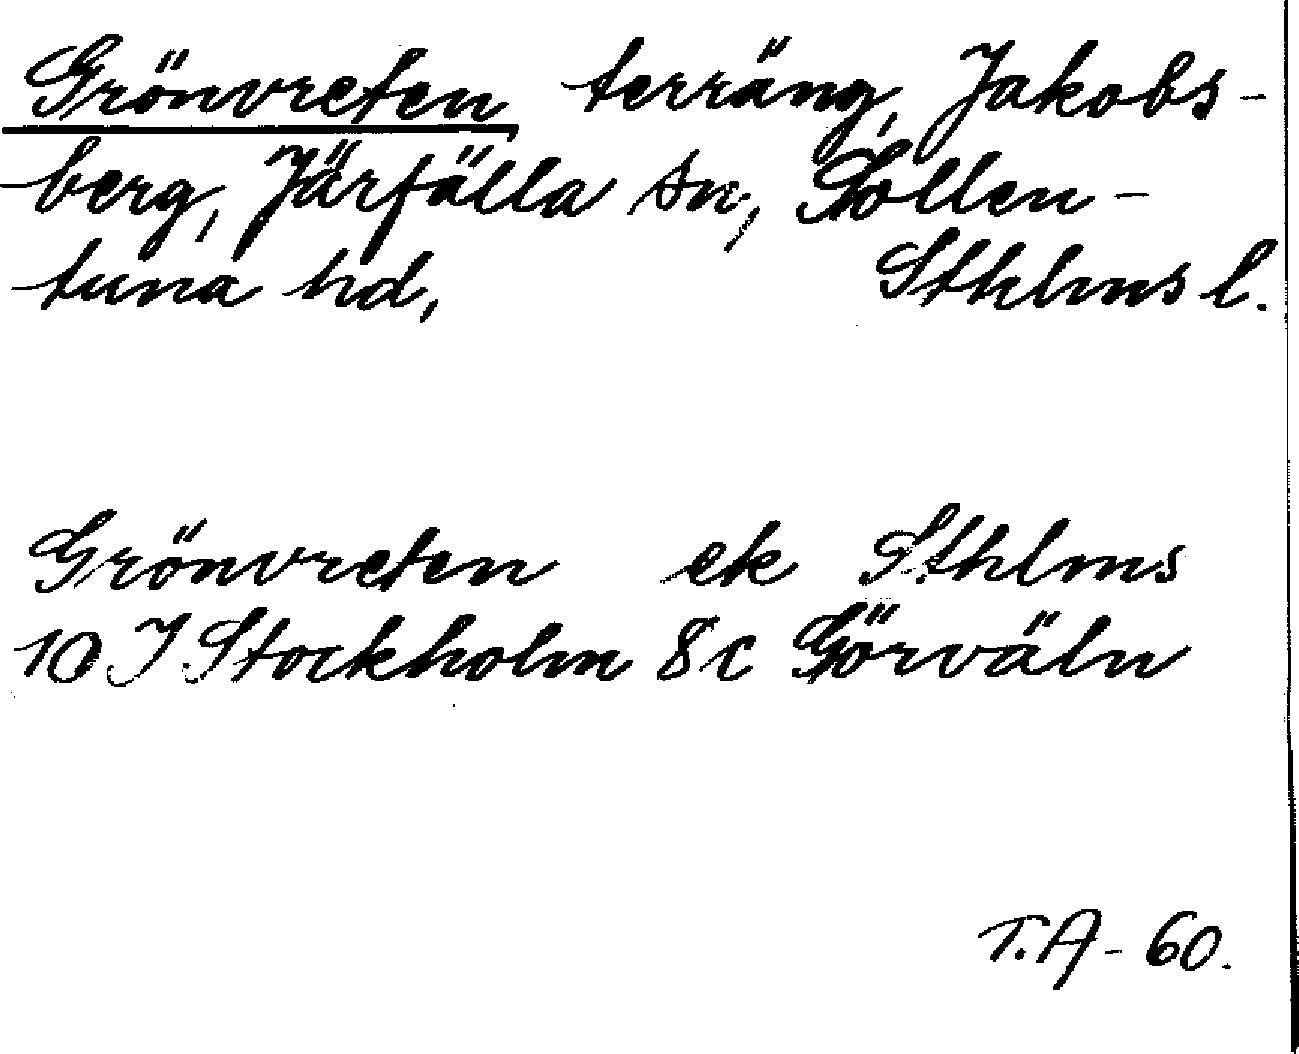 Grönvreten, terräng, Jakobs-
berg, Järfälla sn, Sollen-
tuna hd, Sthlms l.
Grönvreten ek Sthlms
10 I Stockholm 8c Görväln
T.A - 60.